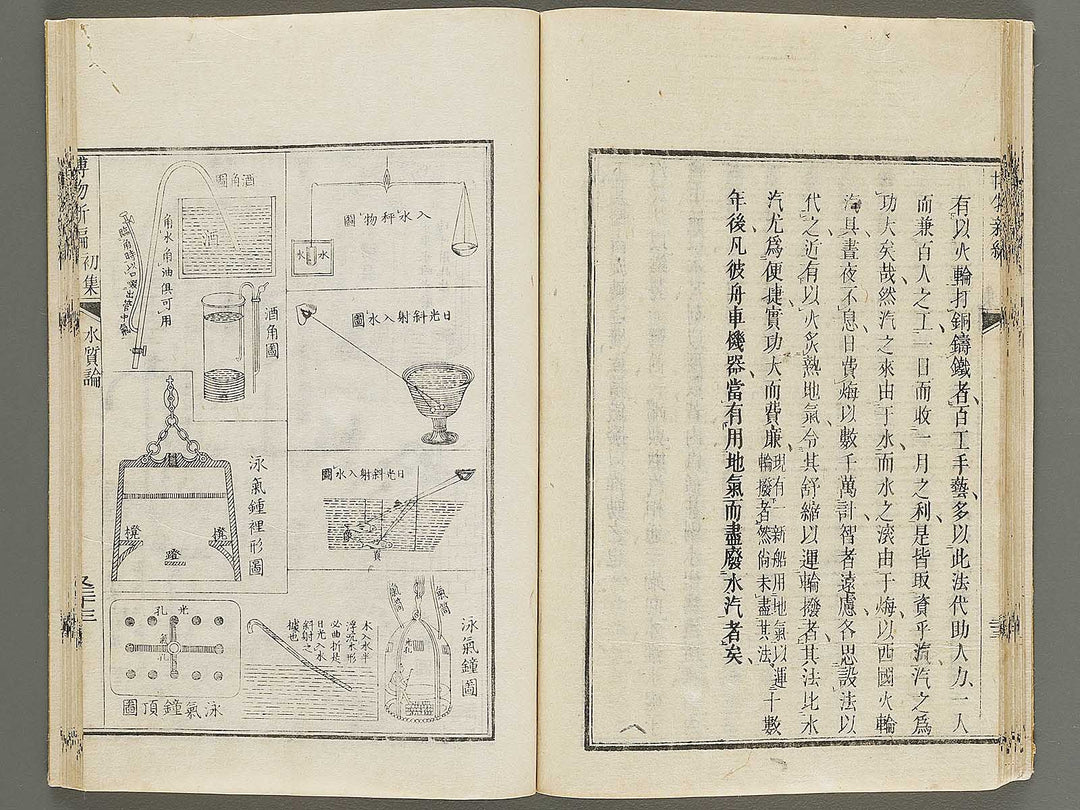 有以火輪打銅鑄鐵者、百工手藝、多以此法代助人力、一人
而兼百人之工、一日而收一月之利、是皆取資乎滊、滊之爲
功大矣哉、然汽之來由于水、而水之滾由于煤、以西國火輪
滊具、晝夜不息、日費煤以數千萬計、智者遠慮、各思設法以
代之、近有以火炙熱地氣、令其舒縮以運輪撥者、其法比水
汽尤爲便捷、實功大而費廉、
現有一新船用地氣以運
輪撥者然尙未盡其法、
十數
年後、凡彼舟車機器、當有用地氣而盡廢水汽者矣、
入水秤物圖
水
水
日光斜射入水圖
日光斜射入水圖
泳氣鐘圖
氣筒
氣筒
木入水半
浮流木形
必曲折是
日光入水
斜射之
據也
酒角圖
酒
角水角油俱可用
酒角圖
泳氣鐘裡形圖
櫈
櫈
燈
光孔
氣孔
泳氣鐘頂圖
博物新編
初集
水質論